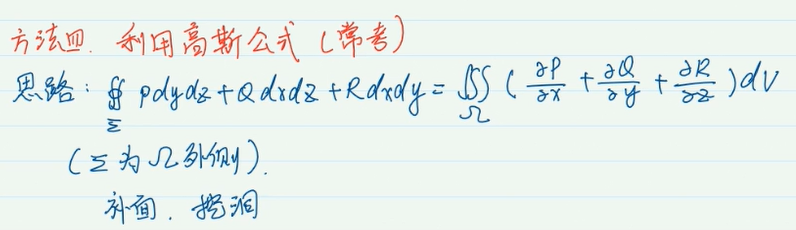 方法四. 利用高斯公式 (常考)
思路: ∯_Σ Pdydz + Qdxdz + Rdxdy = ∭_Ω (∂P/∂x + ∂Q/∂y + ∂R/∂z) dV
(Σ为Ω外侧).
补面. 挖洞